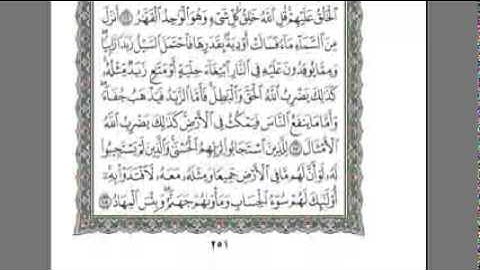 الْخَلْقُ عَلَيْهِمْ قُلِ اللَّهُ خَالِقُ كُلِّ شَيْءٍ وَهُوَ الْوَاحِدُ الْقَهَّارُ ١٦ أَنزَلَ
مِنَ السَّمَاءِ مَاءً فَسَالَتْ أَوْدِيَةٌ بِقَدَرِهَا فَاحْتَمَلَ السَّيْلُ زَبَدًا رَّابِيًا
وَمِمَّا يُوقِدُونَ عَلَيْهِ فِي النَّارِ ابْتِغَاءَ حِلْيَةٍ أَوْ مَتَاعٍ زَبَدٌ مِّثْلُهُ
كَذَٰلِكَ يَضْرِبُ اللَّهُ الْحَقَّ وَالْبَاطِلَ فَأَمَّا الزَّبَدُ فَيَذْهَبُ جُفَاءً
وَأَمَّا مَا يَنفَعُ النَّاسَ فَيَمْكُثُ فِي الْأَرْضِ كَذَٰلِكَ يَضْرِبُ اللَّهُ
الْأَمْثَالَ ١٧ لِلَّذِينَ اسْتَجَابُوا لِرَبِّهِمُ الْحُسْنَىٰ وَالَّذِينَ لَمْ يَسْتَجِيبُوا
لَهُ لَوْ أَنَّ لَهُم مَّا فِي الْأَرْضِ جَمِيعًا وَمِثْلَهُ مَعَهُ لَافْتَدَوْا بِهِ
أُولَٰئِكَ لَهُمْ سُوءُ الْحِسَابِ وَمَأْوَاهُمْ جَهَنَّمُ وَبِئْسَ الْمِهَادُ ١٨
٢٥١